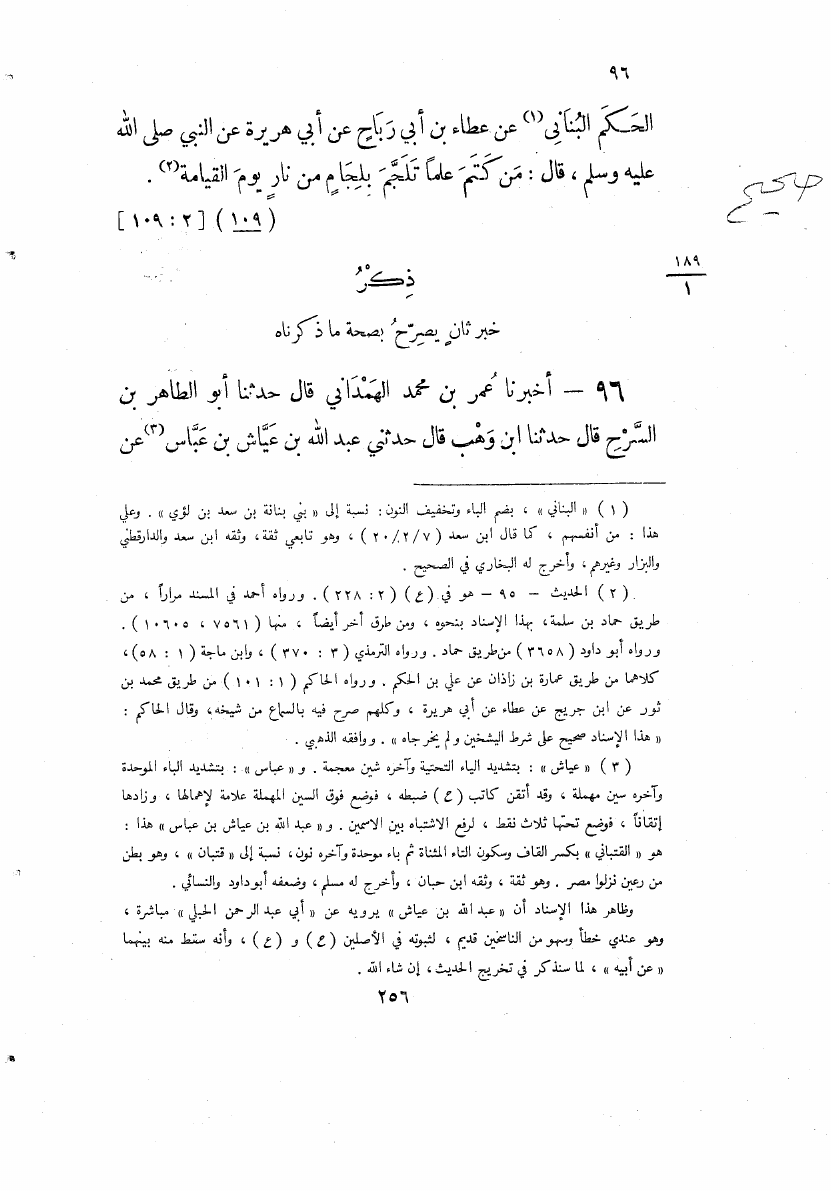 ٩٦
الحَكَم البُنَاني(١) عن عطاء بن أبي رَبَاحٍ عن أبي هريرة عن النبي صلى الله
عليه وسلم ، قال : مَن كَتَمَ علماً تَلَجَّمَ بلِجَامٍ من نارٍ يومَ القيامة(٢) .
صحيح
(١٠٩) [٢ : ١٠٩]
١٨٩
١
ذِكْرُ
خبر ثانٍ يصرِّحُ بصحة ما ذكرناه
٩٦ – أخبرنا عُمر بن محمد الهَمْدَاني قال حدثنا أبو الطاهر بن
السَّرْحِ قال حدثنا ابن وَهْب قال حدثني عبد الله بن عَيَّاش بن عَبَّاس(٣) عن
(١) « البناني » ، بضم الباء وتخفيف النون : نسبة إلى « بني بنانة بن سعد بن لؤي » . وعلي
هذا : من أنفسهم ، كما قال ابن سعد (٢٠/٢/٧) ، وهو تابعي ثقة ، وثقه ابن سعد والدارقطني
والبزار وغيرهم ، وأخرج له البخاري في الصحيح .
(٢) الحديث – ٩٥ – هو في (ع) (٢ : ٢٢٨) . ورواه أحمد في المسند مراراً ، من
طريق حماد بن سلمة ، بهذا الإسناد بنحوه ، ومن طرق أخر أيضاً ، منها (٧٥٦١ ، ١٠٦٠٥) .
ورواه أبو داود (٣٦٥٨) من طريق حماد . ورواه الترمذي (٣ : ٣٧٠) ، وابن ماجة (١ : ٥٨) ،
كلاهما من طريق عمارة بن زاذان عن علي بن الحكم . ورواه الحاكم (١ : ١٠١) من طريق محمد بن
ثور عن ابن جريج عن عطاء عن أبي هريرة ، وكلهم صرح فيه بالسماع من شيخه ، وقال الحاكم :
« هذا الإسناد صحيح على شرط اليشخين ولم يخرجاه » . ووافقه الذهبي .
(٣) « عياش » : بتشديد الياء التحتية وآخره شين معجمة . و « عباس » : بتشديد الباء الموحدة
وآخره سين مهملة ، وقد أتقن كاتب (ع) ضبطه ، فوضع فوق السين المهملة علامة لإهمالها ، وزادها
إتقاناً ، فوضع تحتها ثلاث نقط ، لرفع الاشتباه بين الاسمين . و « عبد الله بن عياش بن عباس » هذا :
هو « القتباني » بكسر القاف وسكون التاء المثناة ثم باء موحدة وآخره نون ، نسبة إلى « قتبان » ، وهو بطن
من رعين نزلوا مصر . وهو ثقة ، وثقه ابن حبان ، وأخرج له مسلم ، وضعفه أبو داود والنسائي .
وظاهر هذا الإسناد أن « عبد الله بن عياش » يرويه عن « أبي عبد الرحمن الحبلي » مباشرة ،
وهو عندي خطأ وسهو من الناسخين قديم ، لثبوته في الأصلين (ح) و (ع) ، وأنه سقط منه بينهما
« عن أبيه » ، لما سنذكر في تخريج الحديث ، إن شاء الله .
٢٥٦